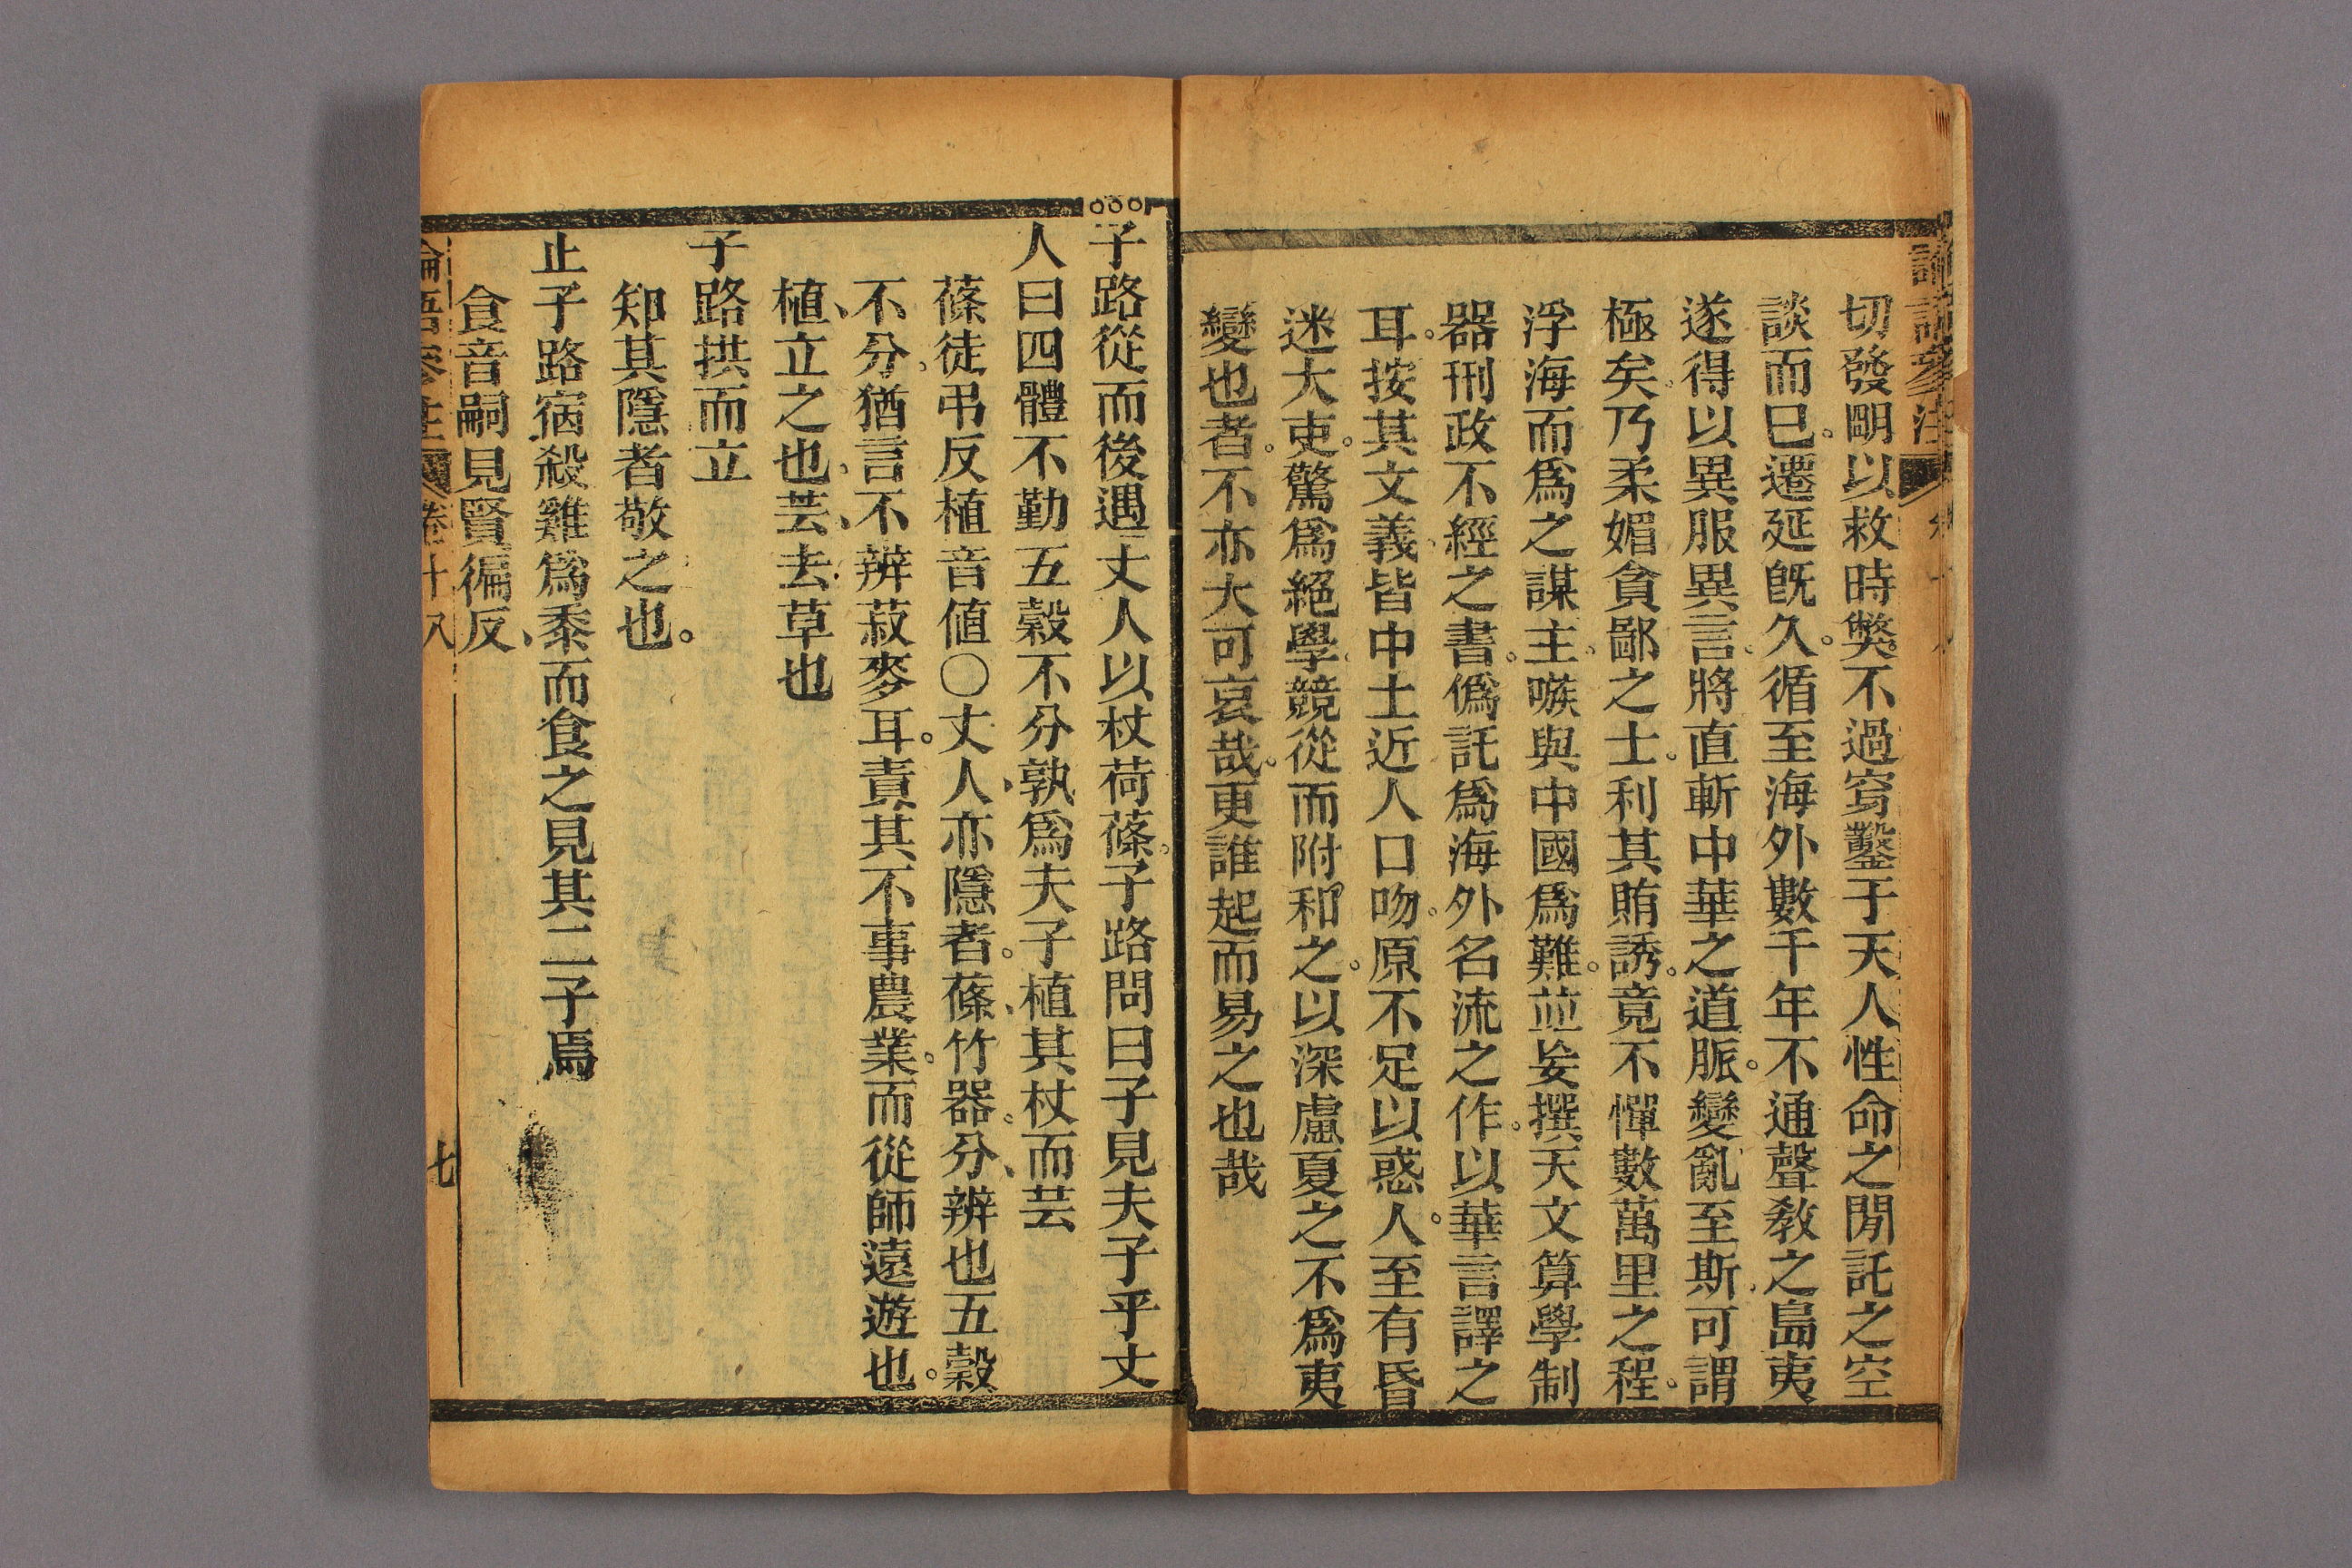 切發明以救時獘不過窮鑿于天人性命之閒託之空
談而已。遷延旣久。循至海外數千年不通聲敎之島夷
遂得以異服異言。將直斬中華之道脈。變亂至斯。可謂
極矣。乃柔媚貪鄙之士。利其賄誘。竟不憚數萬里之程。
浮海而爲之謀主。嗾與中國爲難。並妄撰天文算學制
器刑政不經之書。僞託爲海外名流之作。以華言譯之
耳。按其文義皆中土近人口吻。原不足以惑人。至有昏
迷大吏。驚爲絕學。競從而附和之。以深慮夏之不爲夷
變也者。不亦大可哀哉。更誰起而易之也哉
○○○子路從而後遇丈人以杖荷蓧。子路問曰子見夫子乎丈
人曰四體不勤五穀不分孰爲夫子植其杖而芸
蓧徒弔反植音値○丈人亦隱者。蓧、竹器。分、辨也五穀
不分。猶言不辨菽麥耳。責其不事農業。而從師遠遊也。
植、立之也。芸、去草也
子路拱而立
知其隱者敬之也。
止子路宿殺雞爲黍而食之見其二子焉
食音嗣見賢徧反、
論語參註 卷十八 七